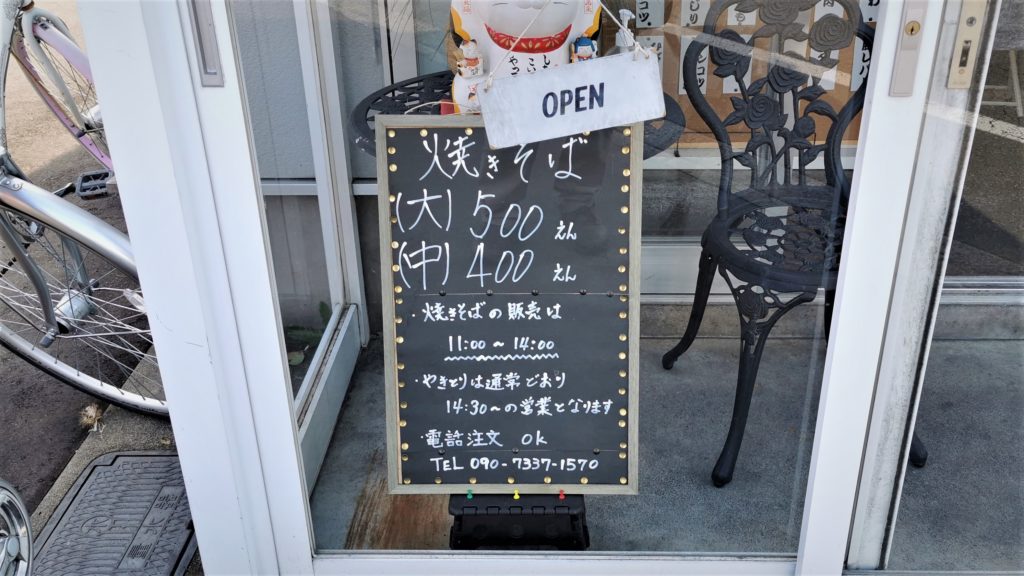 OPEN
焼きそば
(大) 500 えん
(中) 400 えん
・焼きそばの販売は
11:00 ~ 14:00
・やきとりは通常どおり
14:30~の営業となります
・電話注文 ok
TEL 090-7337-1570